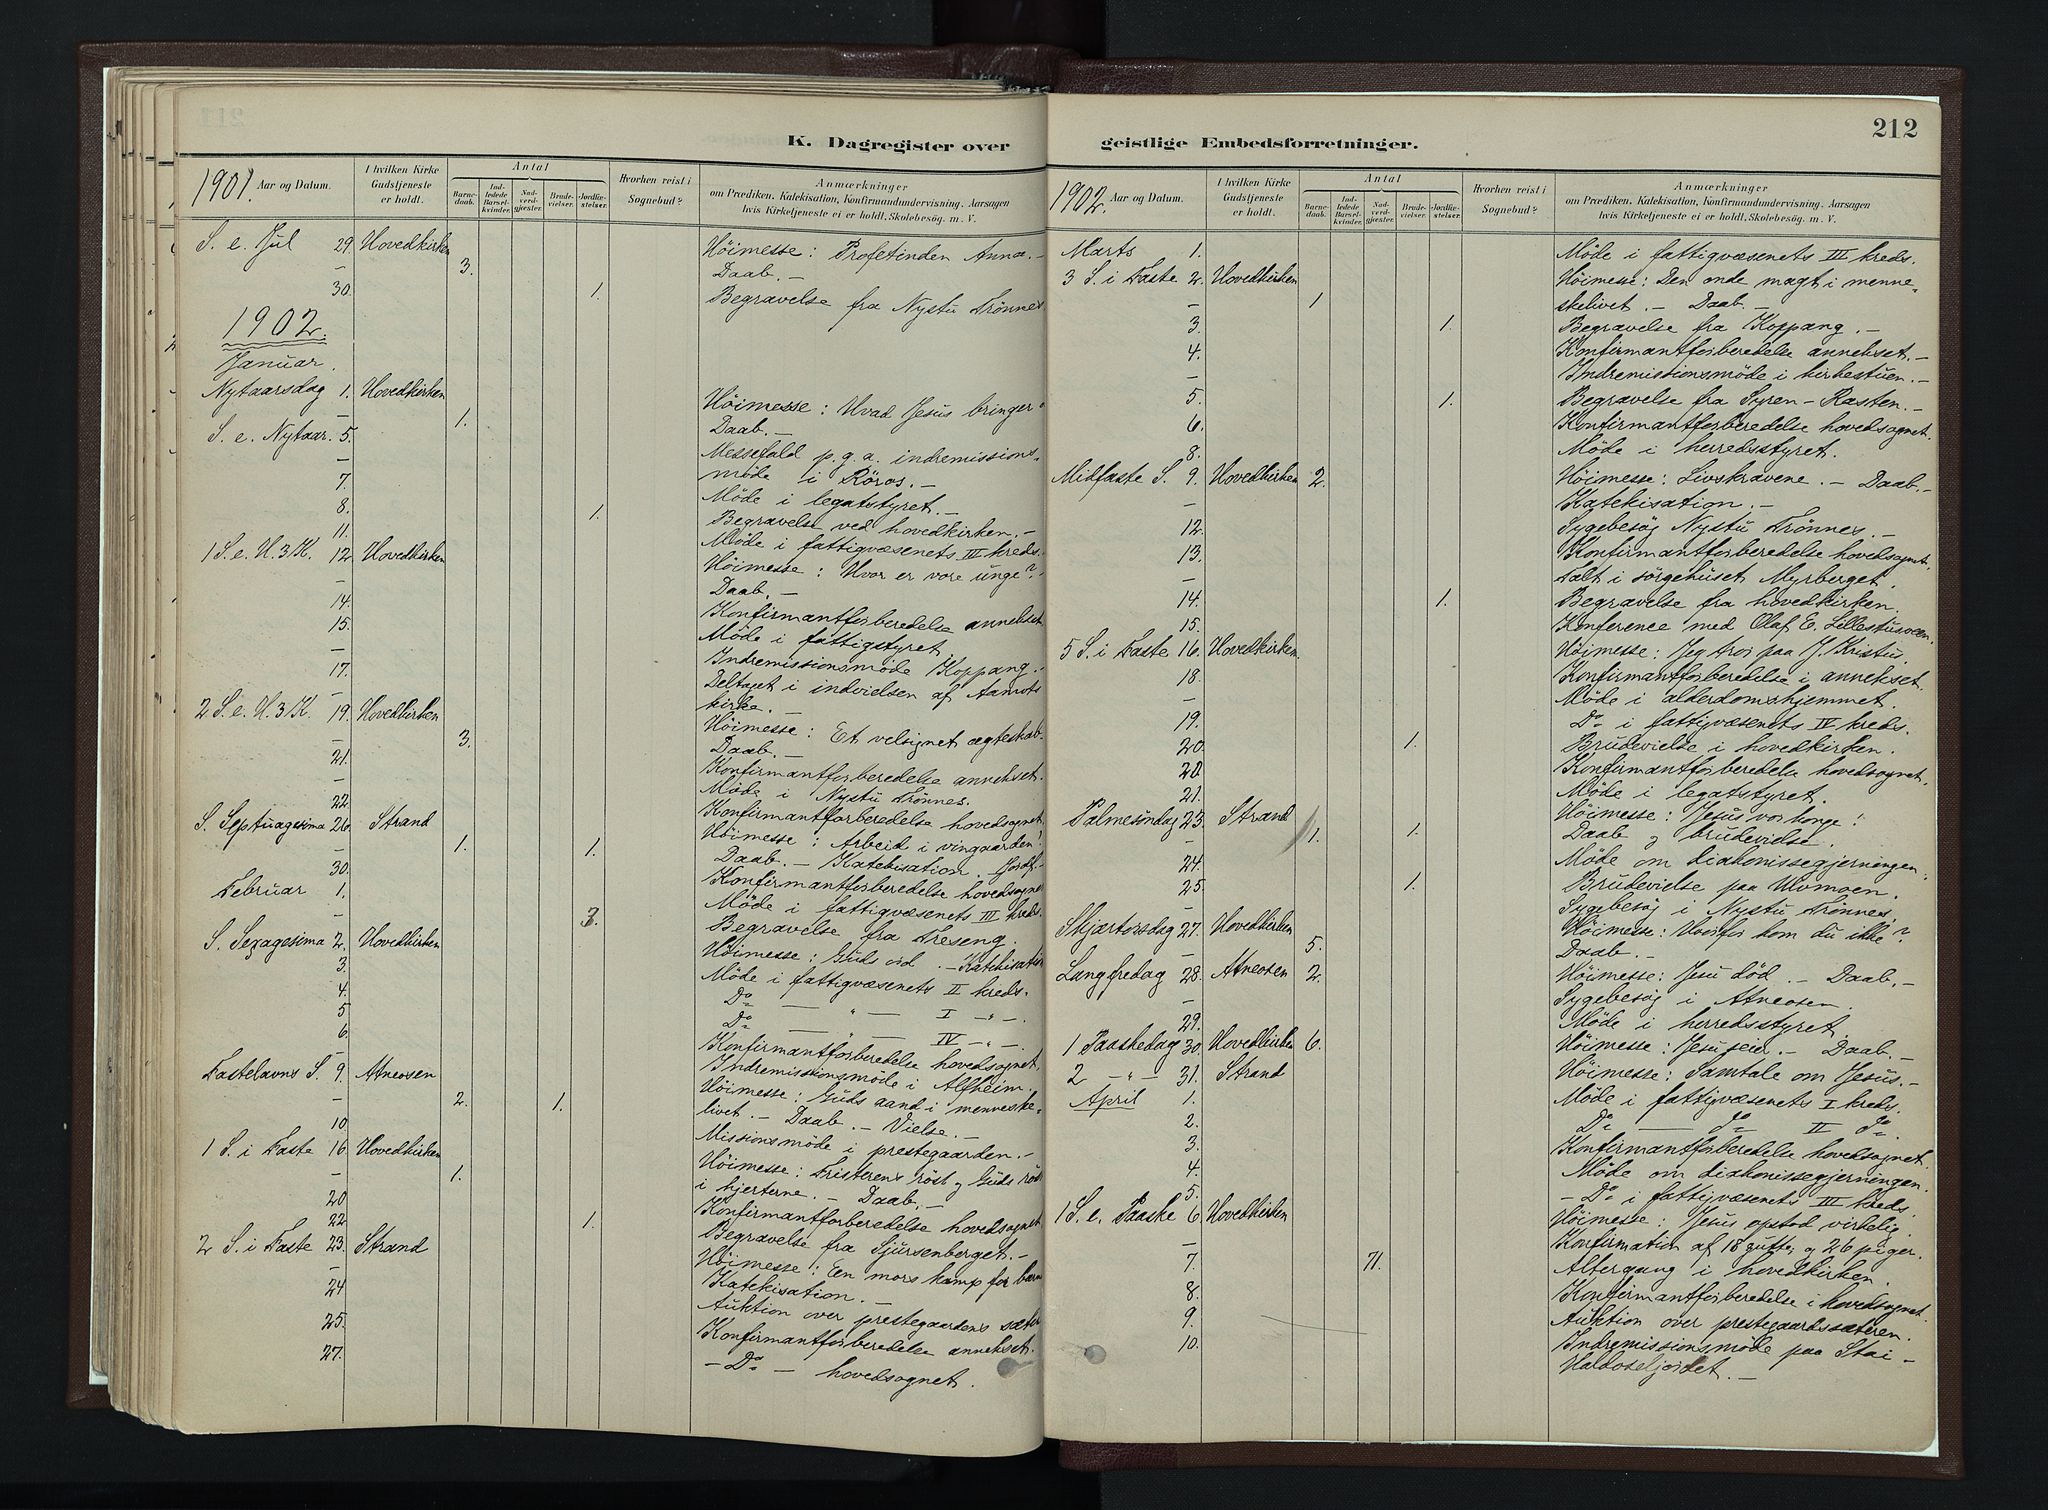 212
K. Dagregister over
1901. Aar og Datum.
I hvilken Kirke Gudstjeneste er holdt.
Antal
Barne-daab.
Ind-ledede Barsel-kvinder.
Nad-verd-gjester.
Brude-vielser.
Jordfæ-stelser.
Hvorhen reist i Sognebud?
Anmærkninger
om Prædiken, Katekisation, Konfirmandundervisning, Aarsagen
hvis Kirketjeneste ei er holdt, Skolebesög. m. V.
S. e. Jul 29. Hovedkirken Höimesse: Profetinden Anna. –
– 3. Daab. –
30. 1. Begravelse fra Nystu Trönnes
1902.
Januar.
Nytaarsdag 1. Hovedkirken Höimesse: Hvad Jesus bringer
– 1. Daab. –
S. e. Nytaar. 5. Messefald p.g.a. indremissions-
– möde i Röros. –
7. Möde i legatstyret. –
8. 1. Begravelse ved hovedkirken. –
11. Möde i fattigvæsenets III kreds.
1 S. e. H. 3 K. 12. Hovedkirken Höimesse: Hvor er vore unge? –
– Daab. –
14. Konfirmantforberedelse annekset.
15. Möde i fattigstyret.
– Indremissionsmöde Koppang. –
17. Deltaget i indvielsen af Aamots
– kirke. –
2 S. e. H. 3 K. 19. Hovedkirken Höimesse: Et velsignet ægteskab.
– 3. Daab. –
21. Konfirmantforberedelse annekset.
– Möde i Nystu Trönnes.
22. Konfirmantforberedelse hovedsognet
S. Septuagesima 26. Strand Höimesse: Arbeid i vingaarden!
– 1. 1. Daab. – Katekisation. Jordf.
30. Konfirmantforberedelse hovedsognet
Februar 1. Möde i fattigvæsenets III kreds.
– 3. Begravelse fra Treseng.
S. Sexagesima 2. Hovedkirken Höimesse: Guds ord. – Katekisation
3. Möde i fattigvæsenets II kreds.
4. Do – " – I – " –
5 Do – IV – " –
6. Konfirmantforberedelse hovedsognet.
– Indremissionsmöde i Alfheim.
Fastelavns S. 9. Atneosen Höimesse: Guds aand i menneske-
– 2. 1. livet. – Daab. – Vielse. –
10 Missionsmöde i prestegaarden. –
1 S. i Faste 16. Hovedkirken Höimesse: Fristerens röst og Guds röst
– 1. i hjerterne. – Daab. –
20 Konfirmantforberedelse hovedsognet
22 1. Begravelse fra Sjursenberget. –
2 S. i Faste 23. Strand Höimesse: En mors kamp for barn
– Katekisation. –
24 Auktion over prestegaardens sæter
25. Konfirmantforberedelse annekset.
27. – Do – hovedsognet.
geistlige Embedsforretninger.
1902. Aar og Datum.
I hvilken Kirke Gudstjeneste er holdt.
Antal
Barne-daab.
Ind-ledede Barsel-kvinder.
Nad-verd-gjester.
Brude-vielser.
Jordfæ-stelser.
Hvorhen reist i Sognebud?
Anmærkninger
om Prædiken, Katekisation, Konfirmandundervisning, Aarsagen
hvis Kirketjeneste ei er holdt, Skolebesög. m. V.
Marts 1. Möde i fattigvæsenets III kreds.
3 S. i Faste 2. Hovedkirken Höimesse: Den onde magt i menne-
– 1 skelivet. – Daab –
3. 1. Begravelse fra Koppang. –
4. Konfirmantforberedelse annekset. –
– Indremissionsmöde i kirkestuen. –
5. 1. Begravelse fra Syren-Rasten. –
6. Konfirmantforberedelse hovedsognet.
8. Möde i herredsstyret.
Midfaste S. 9. Hovedkirken 2. Höimesse: Livskravene. – Daab. –
– Katekisation. –
12. Sygebesög Nystu Trönnes. –
13. Konfirmantforberedelse hovedsognet.
– Talt i sörgehuset Myrberget.
14. 1. Begravelse fra hovedkirken.
15. Konference med Olaf E. Lillestusveen.
5 S. i Faste 16. Hovedkirken. Höimesse: Jeg tror paa J. Kristus.
18. Konfirmantforberedelse i annekset.
– Möde i alderdomshjemmet.
19. Do i fattigvæsenets IV kreds.
20. 1. Brudevielse i hovedkirken.
20 Konfirmantforberedelse hovedsognet.
21. Möde i legatstyret.
Palmesöndag 23. Strand Höimesse: Jesus vor konge!
– 1. 1. Daab og brudevielse.
24. Möde om diakonissegjerningen.
25. 1. Brudevielse paa Ulvmoen.
Sygebesög i Nystu Trönnes.
Skjærtorsdag 27. Hovedkirken Höimesse: Hvorfor kom du ikke?
5. Daab. –
Langfredag 28. Atneosen 2. Höimesse: Jesu död. – Daab. –
– Sygebesög i Atneosen.
29. Möde i herredsstyret
1 Paaskedag 30. Hovedkirken 6. Höimesse: Jesu seier. – Daab. –
2 – " – 31. Strand Höimesse: Samtale om Jesus. –
April 1. Möde i fattigvæsenets I kreds.
2. Do – do II do.
3. Konfirmantforberedelse hovedsognet.
4. Möde om diakonissegjerningen.
5. – Do i fattigvæsenets III kreds.
1 S. e. Paaske 6. Hovedkirken Höimesse: Jesus opstod virkelig.
– Konfirmation af 18 gutter og 26 piger.
7. 71. Altergang i hovedkirken.
8. Konfirmantforberedelse i hovedsognet.
9. Auktion over prestegaardssæteren.
10. Indremissionsmöde paa Stai –